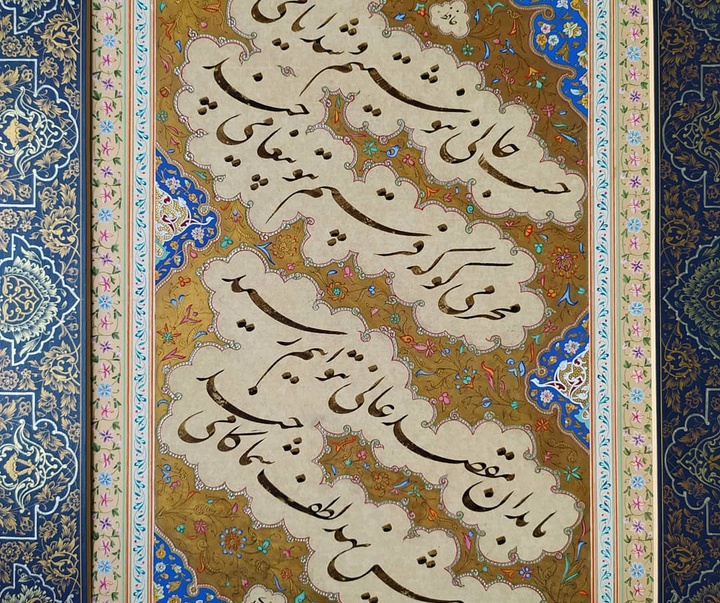 حافظ
حسب حالی ننوشتیم و شد ایامی چند
محرمی کو که فرستم بتو پیغامی چند
ما بدان مقصد عالی نتوانیم رسید
پیش نهد لطف شما گامی چند